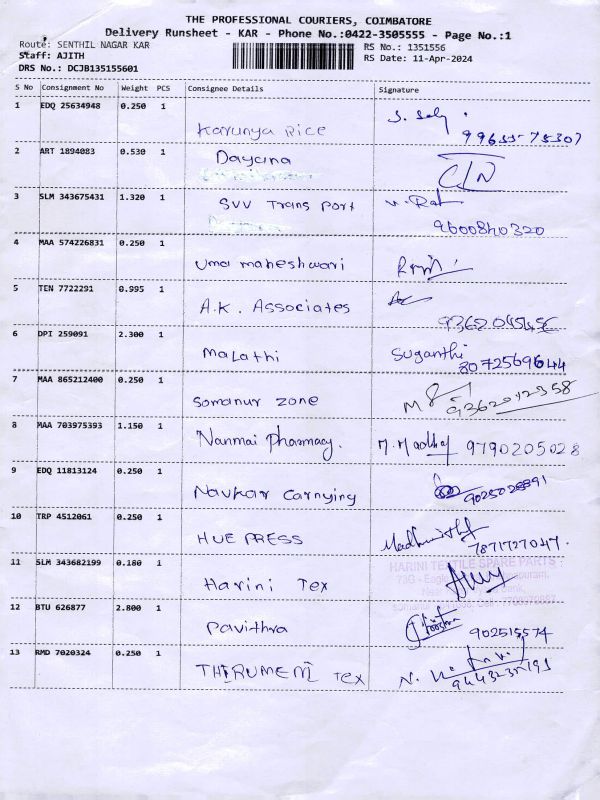 THE PROFESSIONAL COURIERS, COIMBATORE
Delivery Runsheet - KAR - Phone No.:0422-3505555 - Page No.:1
Route: SENTHIL NAGAR KAR
RS No.: 1351556
Staff: AJITH
RS Date: 11-Apr-2024
DRS No.: DCJB135155601
S No Consignment No Weight PCS Consignee Details Signature
1 EDQ 25634948 0.250 1
Karunya Rice
99655-75307
2 ART 1894083 0.530 1
Dayana
3 SLM 343675431 1.320 1
SVV Trans Port
9600840320
4 MAA 574226831 0.250 1
Uma maheshwari
5 TEN 7722291 0.995 1
A.K. Associates
6 DPI 259091 2.300 1
Malathi Suganthi
8072569644
7 MAA 865212400 0.250 1
Somanur zone
9362012358
8 MAA 703975393 1.150 1
Nanmai Pharmacy. 9790205028
9 EDQ 11813124 0.250 1
Navkar Carnying
10 TRP 4512061 0.250 1
HUE PRESS
7871727047.
11 SLM 343682199 0.180 1
HARINI TEXTILE SPARE PARTS
Harini Tex
12 BTU 626877 2.800 1
Pavithra
902515574
13 RMD 7020324 0.250 1
Tex